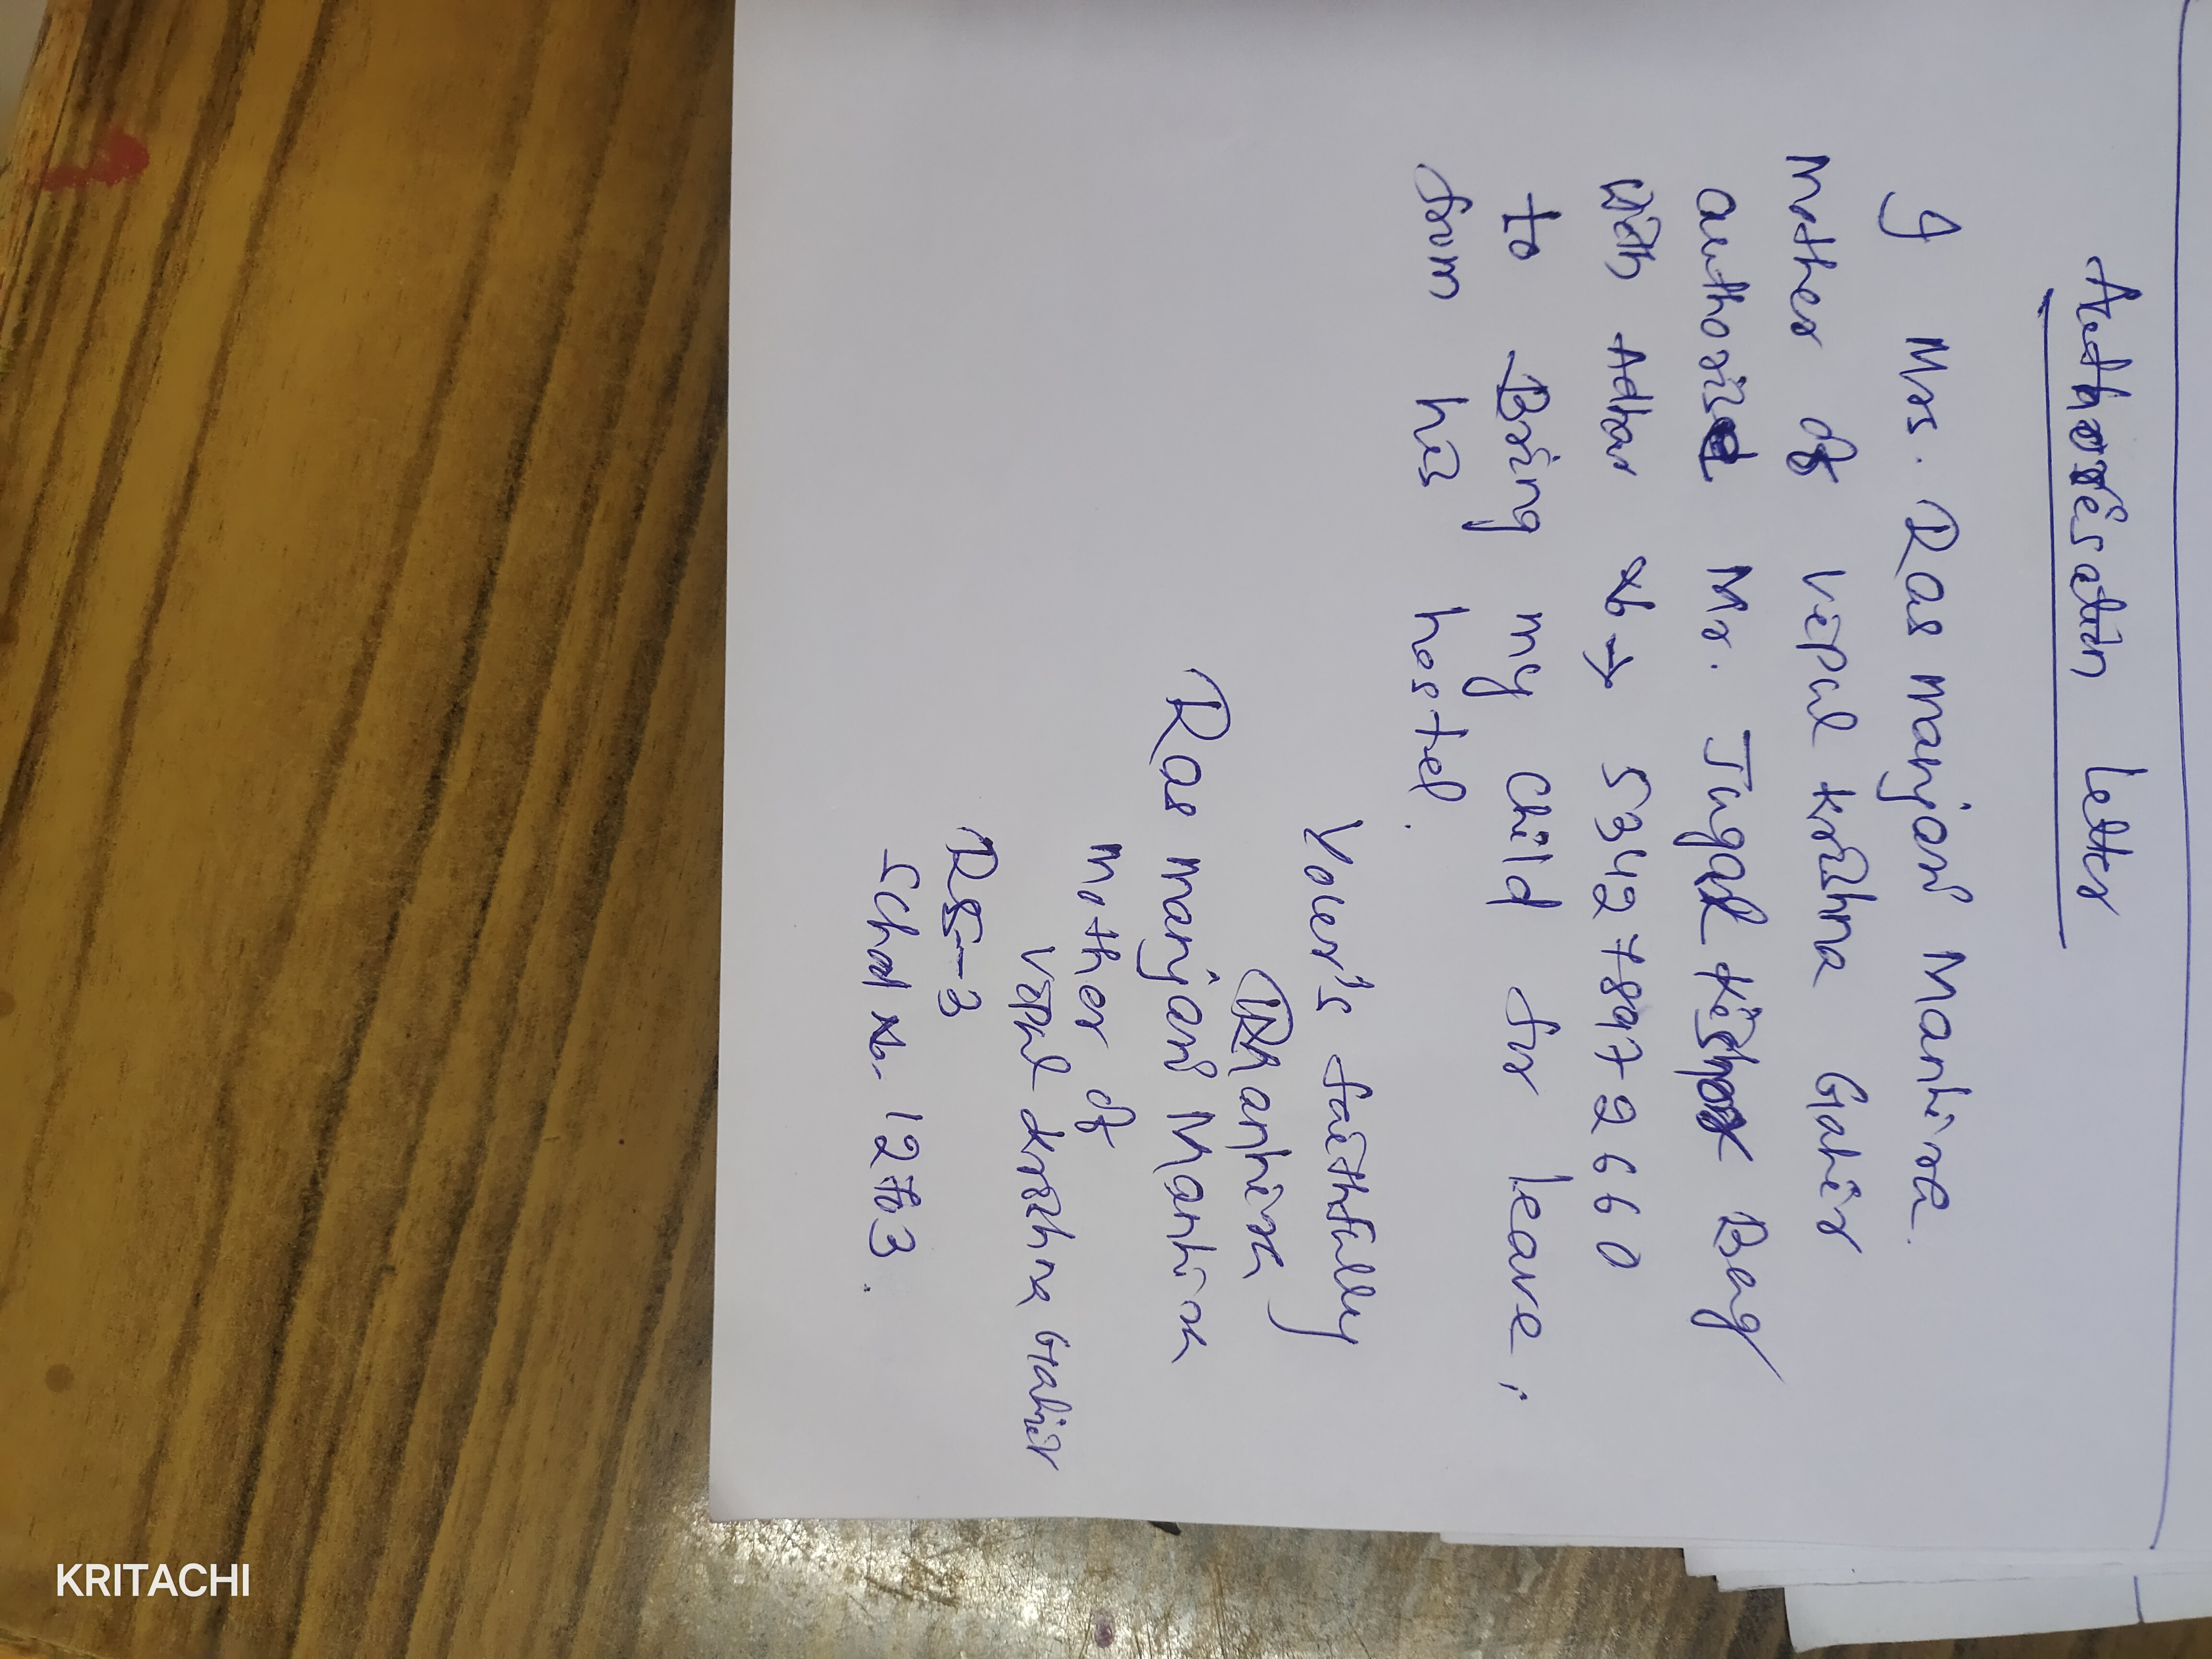 Authorisation letter
I Mrs. Ras manjari Manhira.
mother of Vipul krishna Gahir
authorized Mr. Jugal Kishor Bag
with Adhar No → 534278972660
to Bring my child for leave,
from his hostel.
Your's faithfully
RManhira
Ras manjari Manhira
mother of
Vipul krishna Gahir
RS-3
Schol No. 12763.
KRITACHI